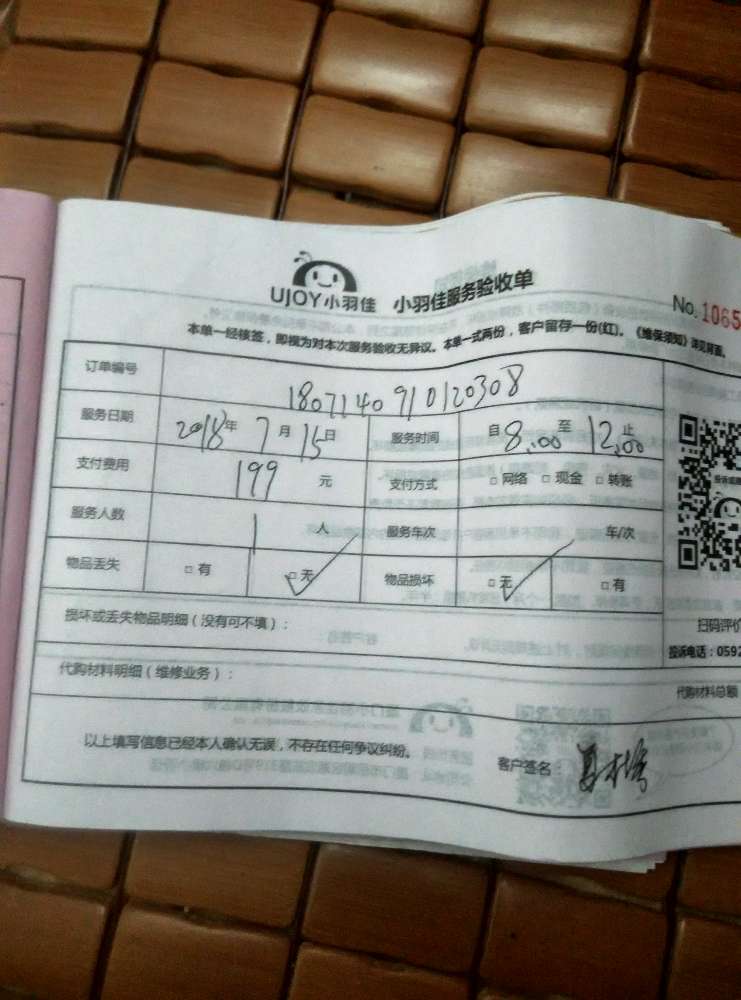 UJOY小羽佳 小羽佳服务验收单
No. 1065
本单一经核签，即视为对本次服务验收无异议。本单一式两份，客户留存一份(红)。《维保须知》详见背面。
订单编号 1807140910120308
服务日期 2018年 7月 15日 服务时间 自8:00至12:00止
支付费用 199 元 支付方式 □网络 □现金 □转账
服务人数 1 人 服务车次 车/次
物品丢失 □有 □无 物品损坏 □无 □有
损坏或丢失物品明细（没有可不填）：
扫码评价
投诉电话：0592
代购材料明细（维修业务）：
代购材料总额
以上填写信息已经本人确认无误，不存在任何争议纠纷。
客户签名：